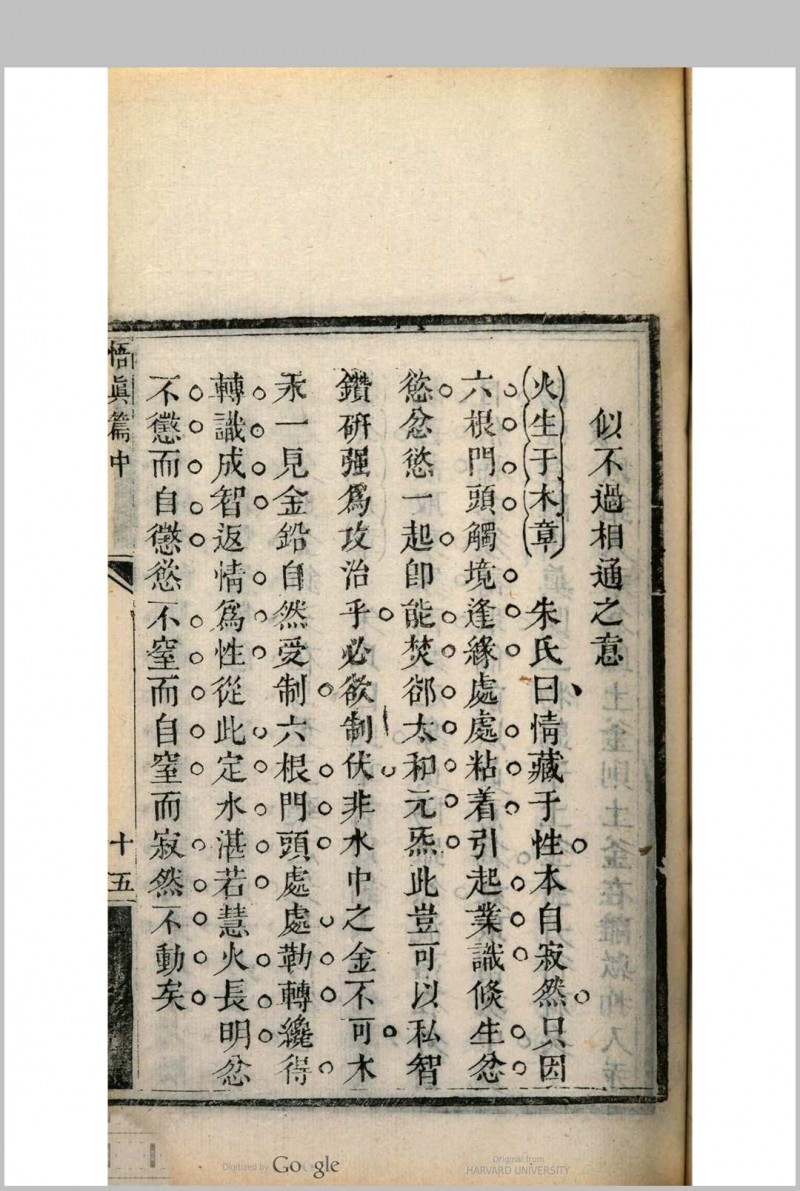 似不過相通之意
(火生于木章) 朱氏曰情藏于性本自寂然只因
六根門頭觸境逢緣處處粘着引起業識倐生忿
慾忿慾一起卽能焚郤太和元炁此豈可以私智
鑽硏强爲攻治乎必欲制伏非水中之金不可木
汞一見金鉛自然受制六根門頭處處勒轉纔得
轉識成智返情爲性從此定水湛若慧火長明忿
不懲而自懲慾不窒而自窒而寂然不動矣
悟眞篇中
十五
Digitized by Google
Original from
HARVARD UNIVERSITY